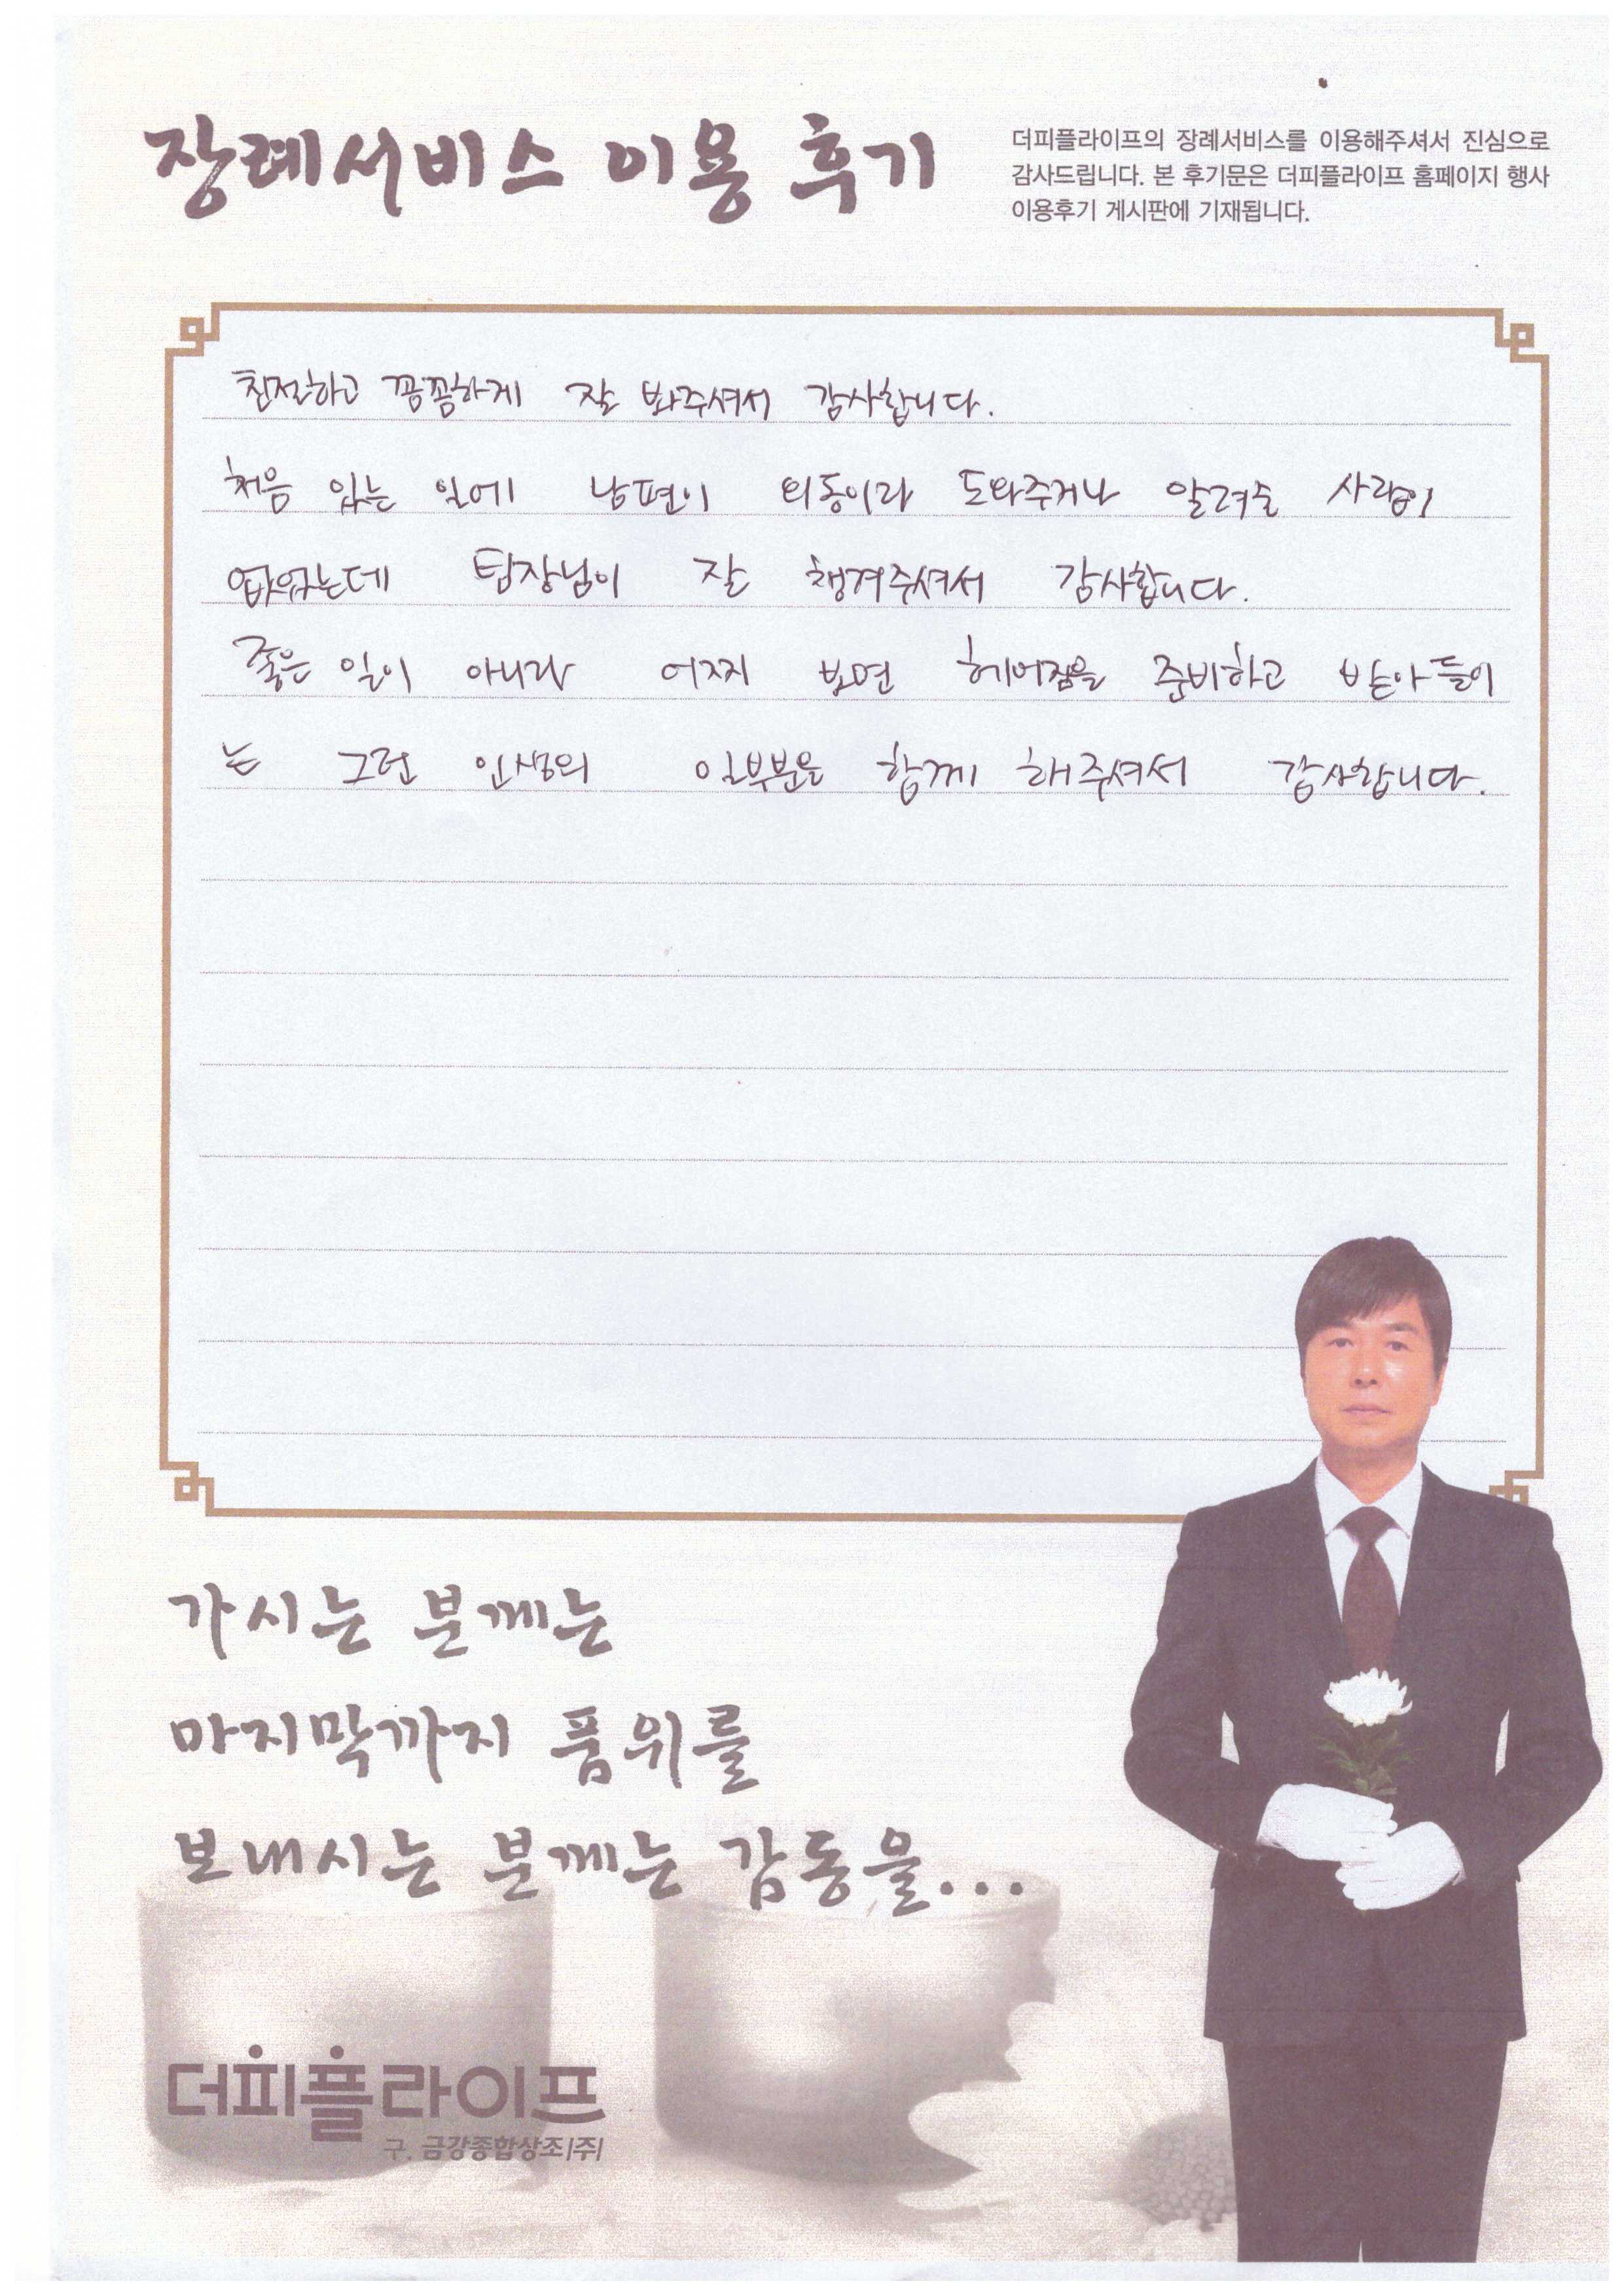 장례서비스 이용 후기
더피플라이프의 장례서비스를 이용해주셔서 진심으로
감사드립니다. 본 후기문은 더피플라이프 홈페이지 행사
이용후기 게시판에 기재됩니다.
친절하고 꼼꼼하게 잘 봐주셔서 감사합니다.
처음 있는 일에 남편이 외동이라 도와주거나 알려줄 사람이
없었는데 팀장님이 잘 챙겨주셔서 감사합니다.
좋은 일이 아니라 어찌 보면 헤어짐을 준비하고 받아들이
는 그런 인생의 일부분을 함께 해주셔서 감사합니다.
가시는 분께는
마지막까지 품위를
보내시는 분께는 감동을...
더피플라이프
구. 금강종합상조|주|